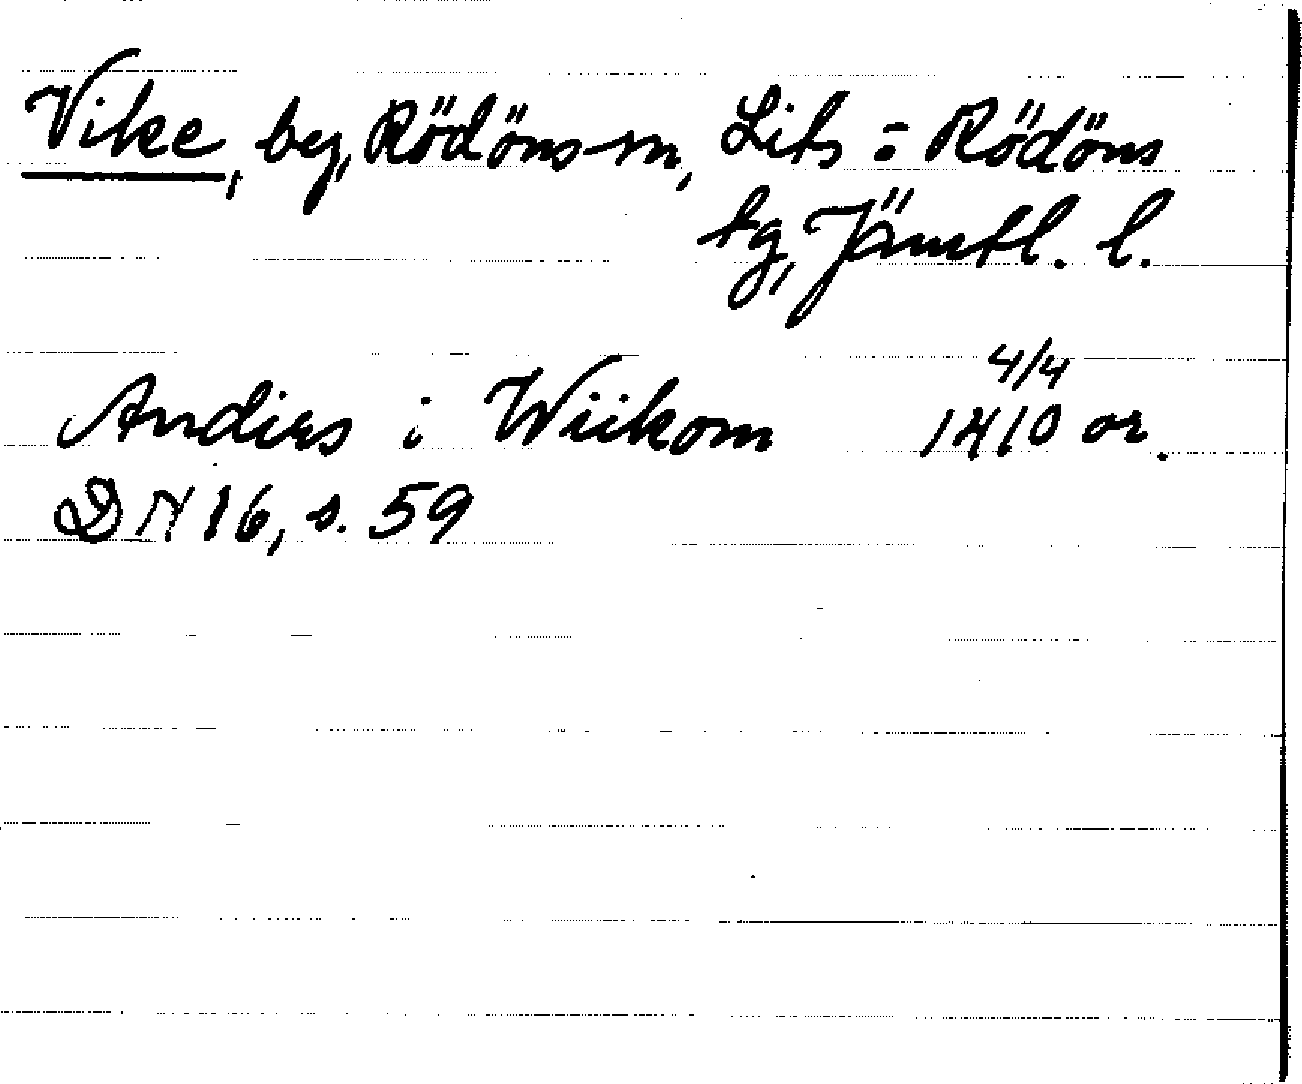 Vike, by, Rödöns sn, Lits = Rödöns
tg, Jämtl. l.
4/4
Andirs i Wiikom 1410 or.
DN 16, s. 59